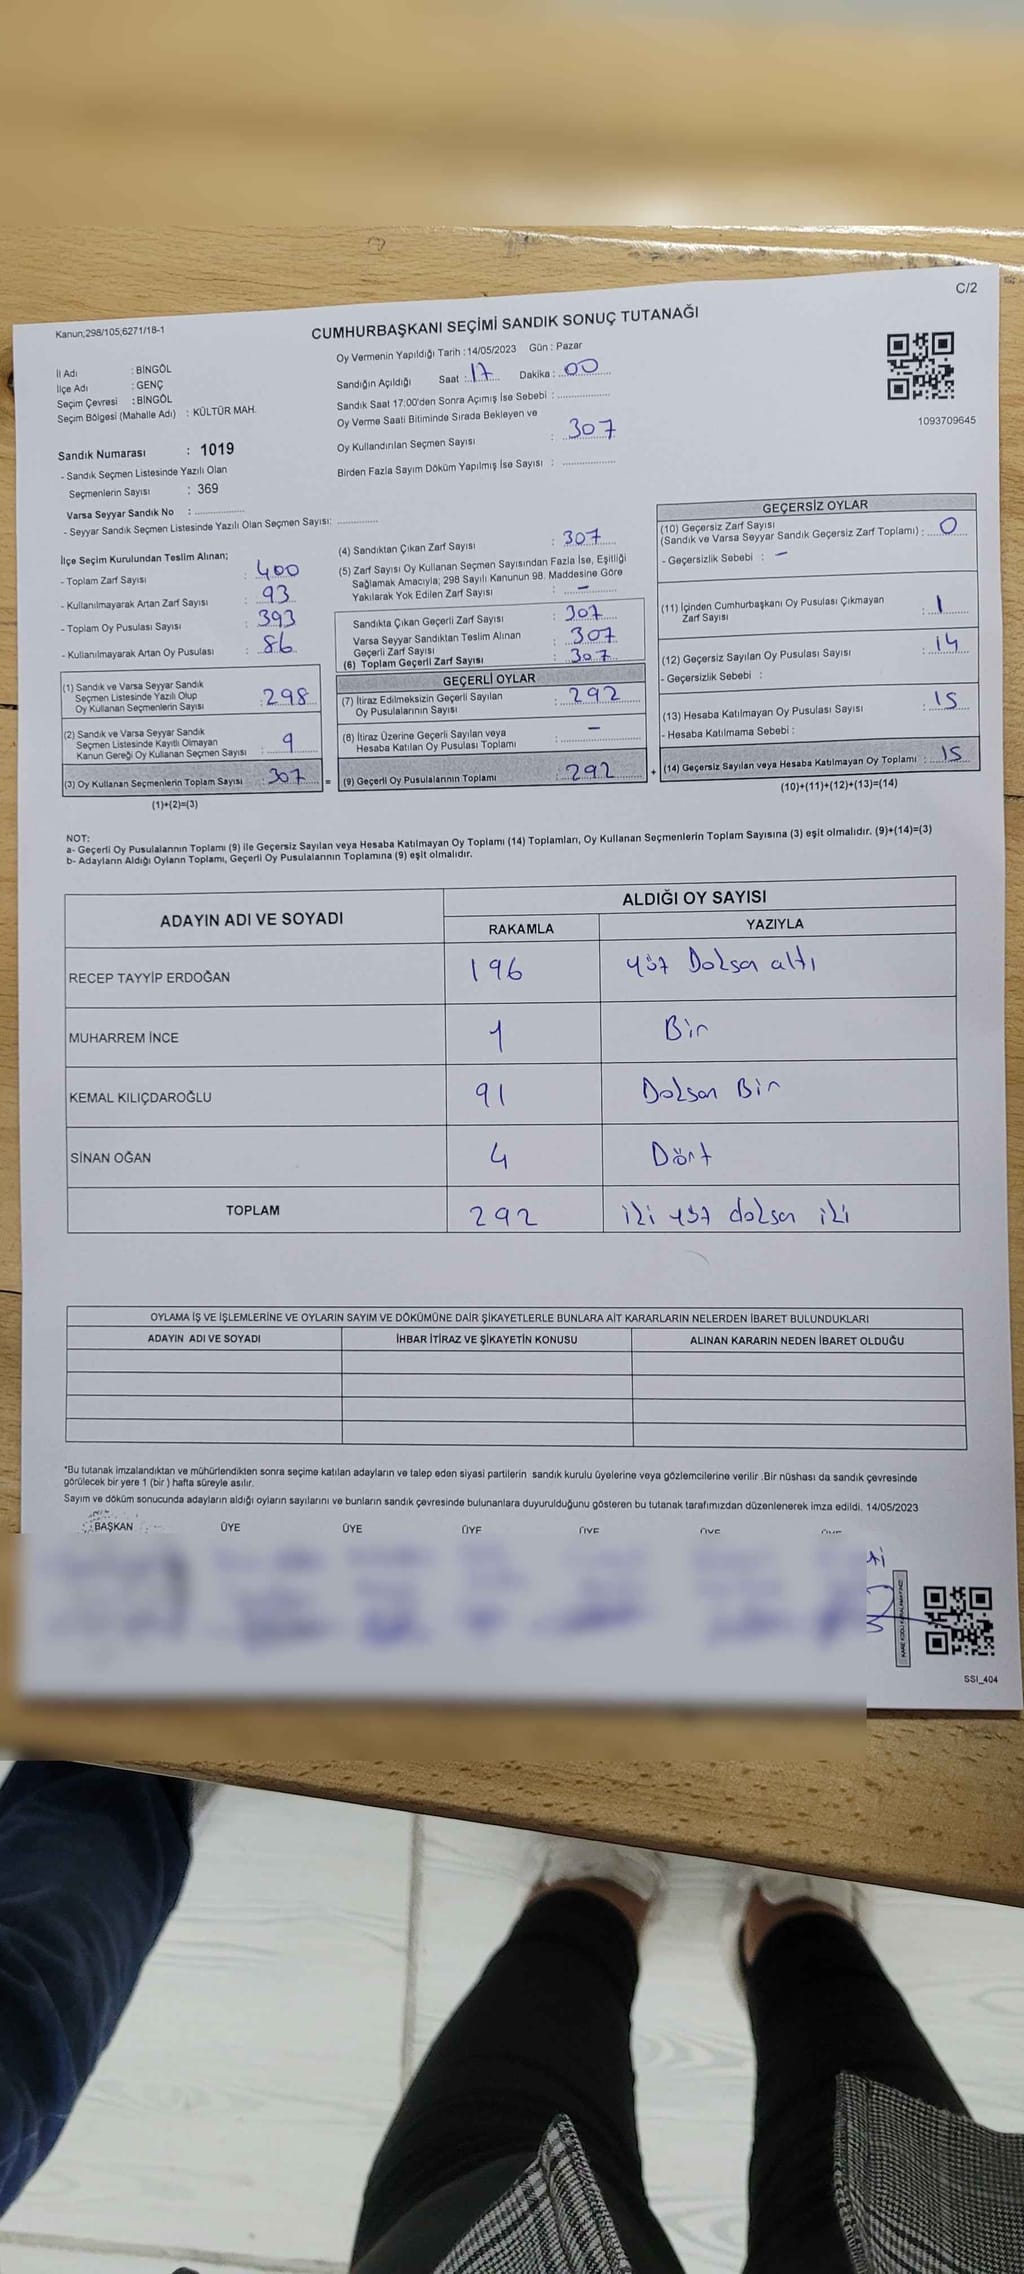 C/2
Kanun;298/105,6271/18-1
CUMHURBAŞKANI SEÇİMİ SANDIK SONUÇ TUTANAĞI
İl Adı : BİNGÖL
İlçe Adı : GENÇ
Seçim Çevresi : BİNGÖL
Seçim Bölgesi (Mahalle Adı) : KÜLTÜR MAH.
Sandık Numarası : 1019
- Sandık Seçmen Listesinde Yazılı Olan
Seçmenlerin Sayısı : 369
Varsa Seyyar Sandık No : ..............
- Seyyar Sandık Seçmen Listesinde Yazılı Olan Seçmen Sayısı: ............
Oy Vermenin Yapıldığı Tarih : 14/05/2023 Gün : Pazar
Sandığın Açıldığı Saat : 17 Dakika : 00
Sandık Saat 17:00'den Sonra Açımış İse Sebebi : ..............
Oy Verme Saati Bitiminde Sırada Bekleyen ve
Oy Kullandırılan Seçmen Sayısı : 307
Birden Fazla Sayım Döküm Yapılmış İse Sayısı : ..............
1093709645
İlçe Seçim Kurulundan Teslim Alınan;
- Toplam Zarf Sayısı : 400
- Kullanılmayarak Artan Zarf Sayısı : 93
- Toplam Oy Pusulası Sayısı : 393
- Kullanılmayarak Artan Oy Pusulası : 86
(1) Sandık ve Varsa Seyyar Sandık
Seçmen Listesinde Yazılı Olup
Oy Kullanan Seçmenlerin Sayısı : 298
(2) Sandık ve Varsa Seyyar Sandık
Seçmen Listesinde Kayıtlı Olmayan
Kanun Gereği Oy Kullanan Seçmen Sayısı : 9
(3) Oy Kullanan Seçmenlerin Toplam Sayısı : 307 =
(1)+(2)=(3)
(4) Sandıktan Çıkan Zarf Sayısı : 307
(5) Zarf Sayısı Oy Kullanan Seçmen Sayısından Fazla İse, Eşitliği
Sağlamak Amacıyla; 298 Sayılı Kanunun 98. Maddesine Göre
Yakılarak Yok Edilen Zarf Sayısı : –
Sandıkta Çıkan Geçerli Zarf Sayısı : 307
Varsa Seyyar Sandıktan Teslim Alınan
Geçerli Zarf Sayısı : 307
(6) Toplam Geçerli Zarf Sayısı : 307
GEÇERLİ OYLAR
(7) İtiraz Edilmeksizin Geçerli Sayılan
Oy Pusulalarının Sayısı : 292
(8) İtiraz Üzerine Geçerli Sayılan veya
Hesaba Katılan Oy Pusulası Toplamı : –
(9) Geçerli Oy Pusulalarının Toplamı : 292 +
GEÇERSİZ OYLAR
(10) Geçersiz Zarf Sayısı
(Sandık ve Varsa Seyyar Sandık Geçersiz Zarf Toplamı) : 0
- Geçersizlik Sebebi : –
(11) İçinden Cumhurbaşkanı Oy Pusulası Çıkmayan
Zarf Sayısı : 1
(12) Geçersiz Sayılan Oy Pusulası Sayısı : 14
- Geçersizlik Sebebi :
(13) Hesaba Katılmayan Oy Pusulası Sayısı : 15
- Hesaba Katılmama Sebebi :
(14) Geçersiz Sayılan veya Hesaba Katılmayan Oy Toplamı : 15
(10)+(11)+(12)+(13)=(14)
NOT:
a- Geçerli Oy Pusulalarının Toplamı (9) ile Geçersiz Sayılan veya Hesaba Katılmayan Oy Toplamı (14) Toplamları, Oy Kullanan Seçmenlerin Toplam Sayısına (3) eşit olmalıdır. (9)+(14)=(3)
b- Adayların Aldığı Oyların Toplamı, Geçerli Oy Pusulalarının Toplamına (9) eşit olmalıdır.
ADAYIN ADI VE SOYADI ALDIĞI OY SAYISI
RAKAMLA YAZIYLA
RECEP TAYYİP ERDOĞAN 196 yüz Doksan altı
MUHARREM İNCE 1 Bir
KEMAL KILIÇDAROĞLU 91 Doksan Bir
SİNAN OĞAN 4 Dört
TOPLAM 292 iki yüz doksan iki
OYLAMA İŞ VE İŞLEMLERİNE VE OYLARIN SAYIM VE DÖKÜMÜNE DAİR ŞİKAYETLERLE BUNLARA AİT KARARLARIN NELERDEN İBARET BULUNDUKLARI
ADAYIN ADI VE SOYADI İHBAR İTİRAZ VE ŞİKAYETİN KONUSU ALINAN KARARIN NEDEN İBARET OLDUĞU
*Bu tutanak imzalandıktan ve mühürlendikten sonra seçime katılan adayların ve talep eden siyasi partilerin sandık kurulu üyelerine veya gözlemcilerine verilir .Bir nüshası da sandık çevresinde
görülecek bir yere 1 (bir ) hafta süreyle asılır.
Sayım ve döküm sonucunda adayların aldığı oyların sayılarını ve bunların sandık çevresinde bulunanlara duyurulduğunu gösteren bu tutanak tarafımızdan düzenlenerek imza edildi. 14/05/2023
BAŞKAN ÜYE ÜYE ÜYE ÜYE ÜYE
SSI_404